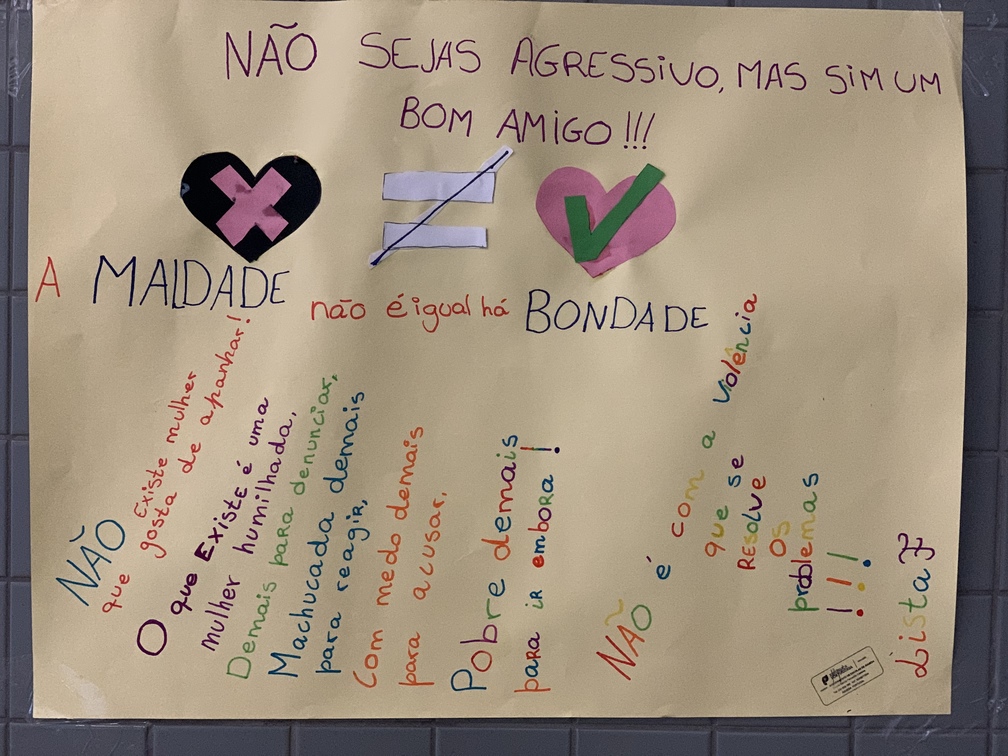 NÃO SEJAS AGRESSIVO, MAS SIM UM
BOM AMIGO!!!
A MALDADE não é igual há BONDADE
NÃO Existe mulher
que gosta de apanhar!
O que Existe é uma
mulher humilhada,
Demais para denunciar,
Machucada demais
para reagir,
Com medo demais
para acusar,
Pobre demais
para ir embora!
NÃO é com a violência
que se
Resolve
os
problemas
!!!